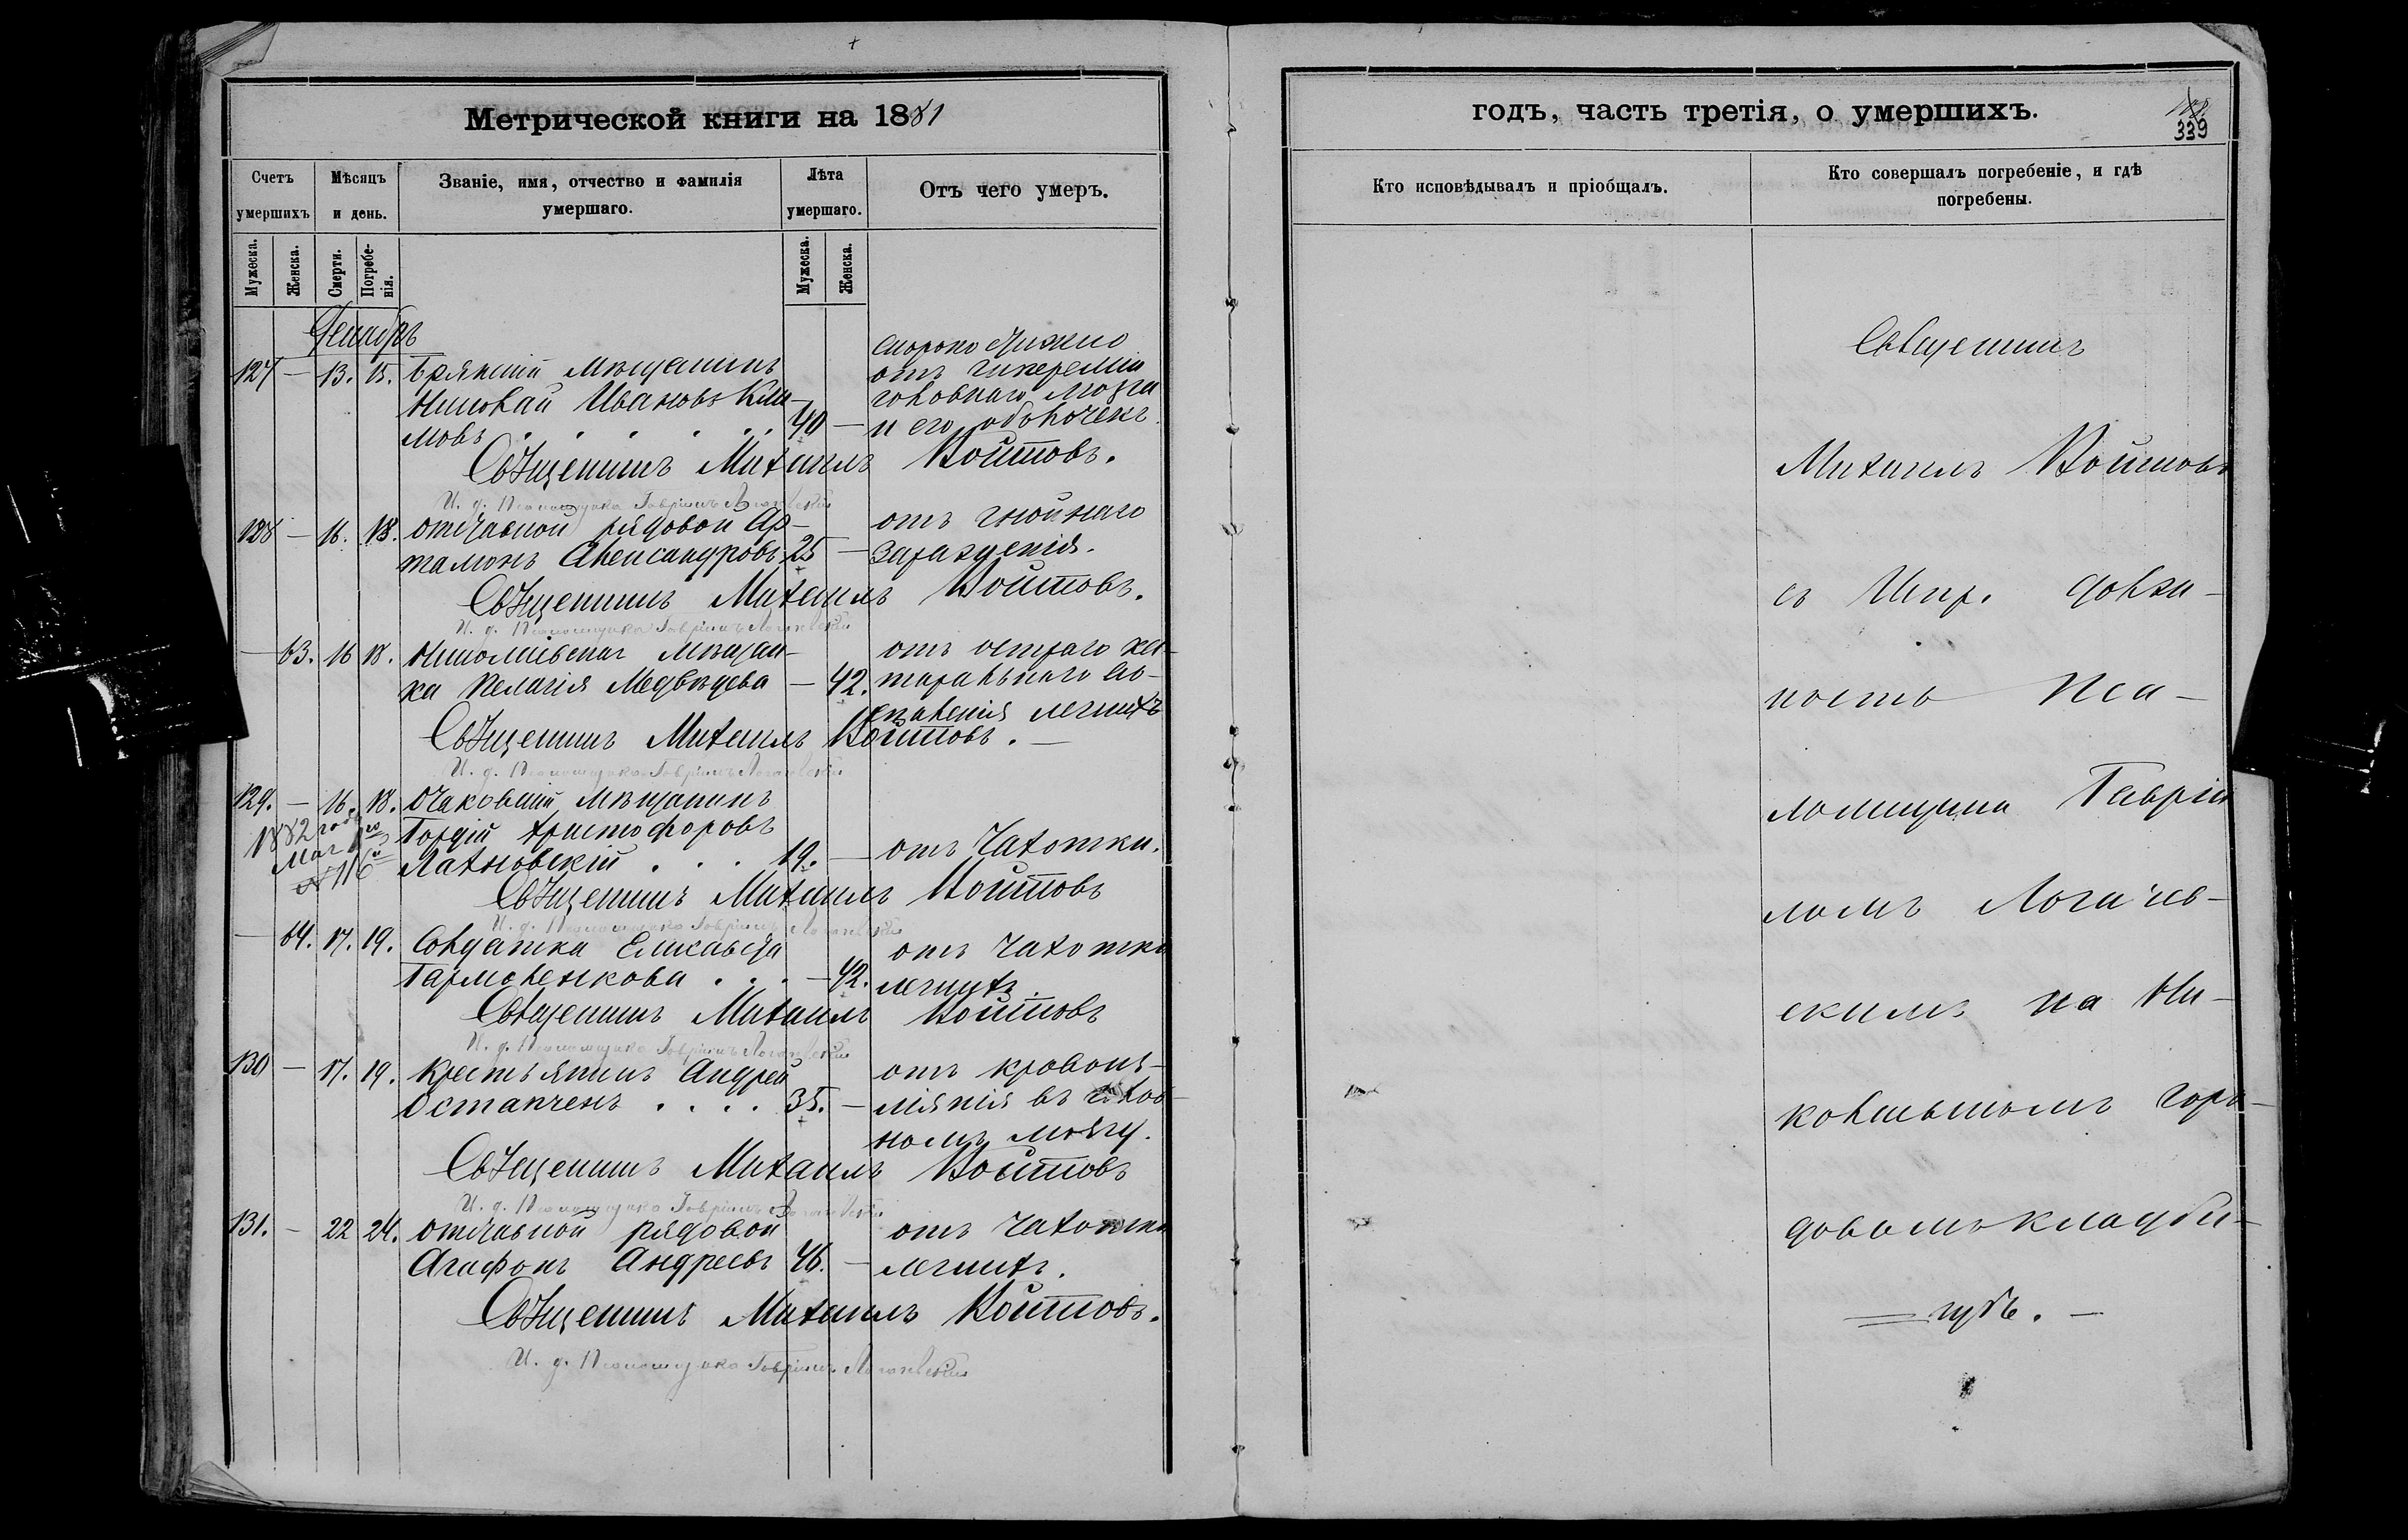 Метрической книги на 1881
Счетъ умершихъ
Мѣсяцъ и день.
Званіе, имя, отчество и фамилія умершаго.
Лѣта умершаго.
Отъ чего умеръ.
Мужеска.
Женска.
Смерти.
Погребенія.
Мужеска.
Женска.
Декабрь
скоропостижно
127 — 13. 15. Брянскій мѣщанинъ отъ гипереміи
Николай Ивановъ Кли- головнаго мозга
мовъ . . . . . . 40 — и его оболочекъ.
Священникъ Михаилъ Войтовъ.
И. д. Псаломщика Гавріилъ Логачевскій
128 — 16. 18. отставной рядовой Ар- отъ гнойнаго
тамонъ Александровъ 25 — зараженія.
Священникъ Михаилъ Войтовъ.
И. д. Псаломщика Гавріилъ Логачевскій
— 63. 16 18. Николаевская мѣщан- отъ остраго ка-
ка Пелагія Медвѣдева — 42. таральнаго во-
спаленія легкихъ
Священникъ Михаилъ Войтовъ. —
И. д. Псаломщика Гавріилъ Логачевскій
129. — 16. 18. Очаковскій мѣщанинъ
1882 года Гордій Христофоровъ
Мая
Лахновскій . . . 19. — отъ чахотки.
№ 116
Священникъ Михаилъ Войтовъ
И. д. Псаломщика Гавріилъ Логачевскій
— 64. 17. 19. Солдатка Елисавета отъ чахотки
Гармоленкова . . . — 42. легкихъ.
Священникъ Михаилъ Войтовъ
И. д. Псаломщика Гавріилъ Логачевскій
130 — 17. 19. Крестьянинъ Андрей отъ кровоиз-
Остапченъ . . . . 35. — ліянія въ голов-
номъ мозгу.
Священникъ Михаилъ Войтовъ
И. д. Псаломщика Гавріилъ Логачевскій
131. — 22 24. отставной рядовой отъ чахотки
Агафонъ Андреевъ 46. — легкихъ.
Священникъ Михаилъ Войтовъ.
И. д. Псаломщика Гавріилъ Логачевскій
годъ, часть третія, о умершихъ.
339
Кто исповѣдывалъ и пріобщалъ.
Кто совершалъ погребеніе, и гдѣ погребены.
Священникъ
Михаилъ Войтовъ
съ Испр. долж-
ность Пса-
ломщика Гавріи-
ломъ Логачев-
скимъ на Ни-
колаевскомъ горо-
довомъ кладби-
щѣ. —